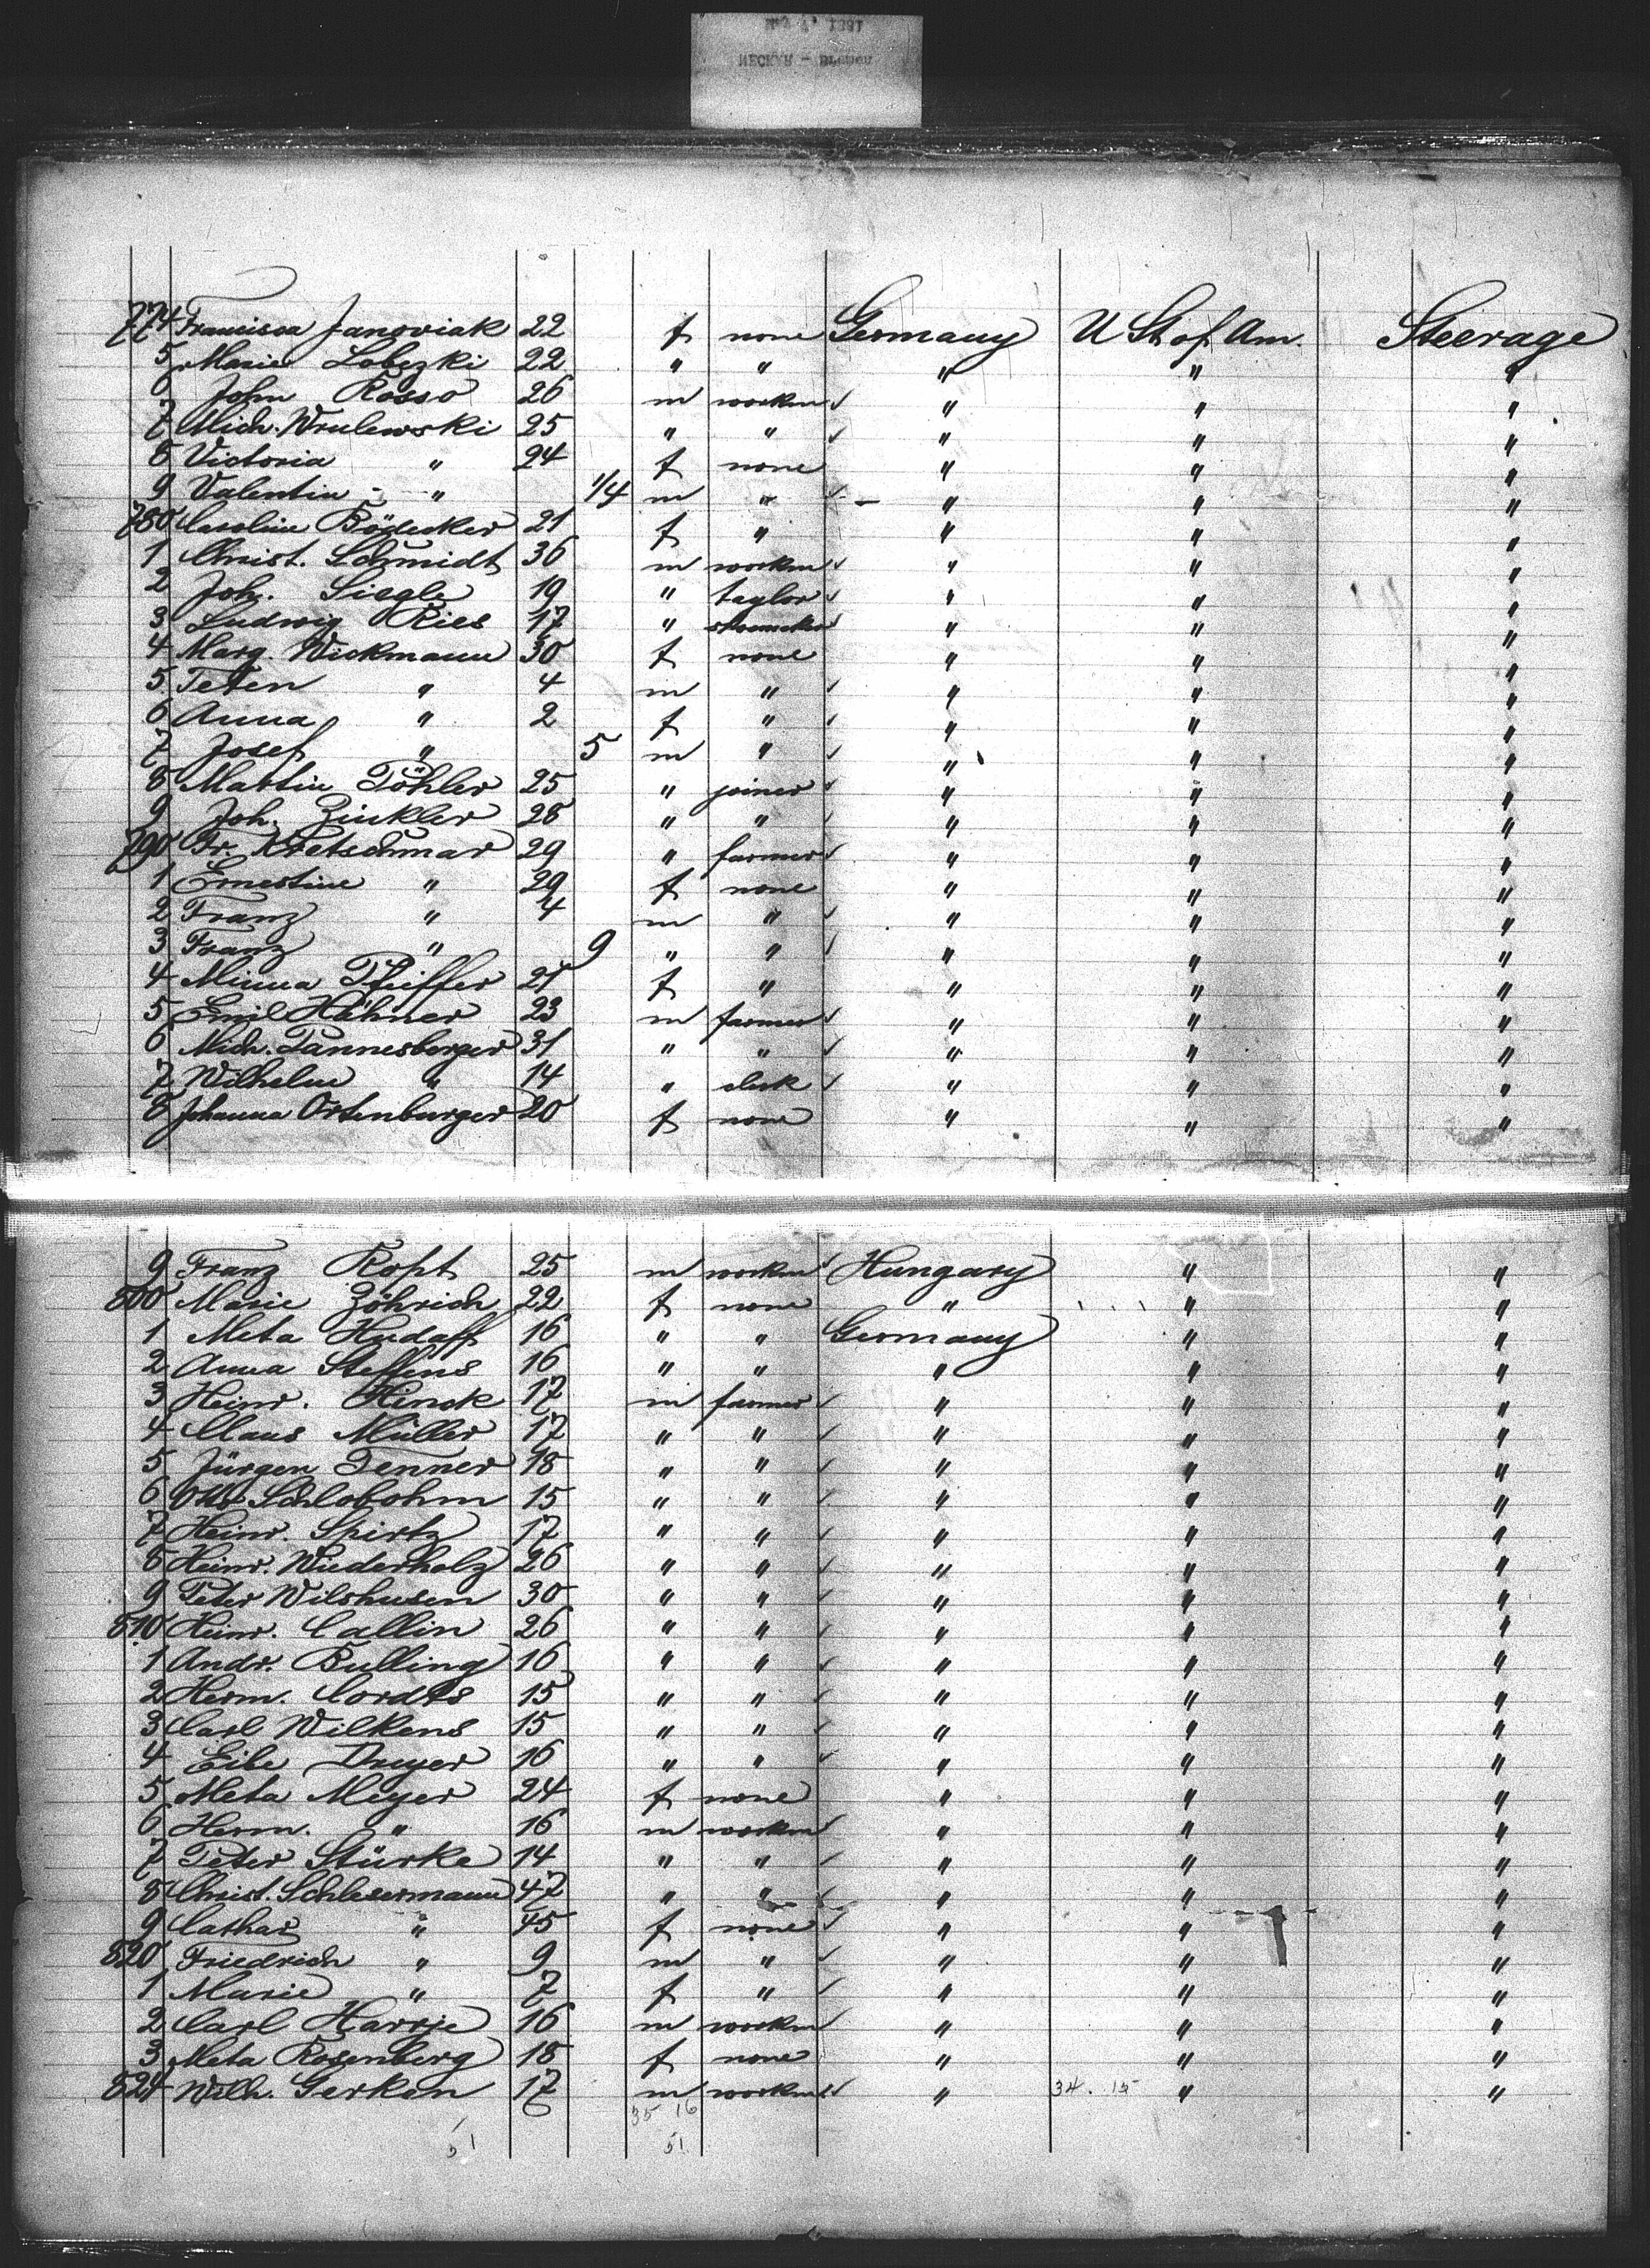 NECKAR - Bremen
774 Francisca Janoviak 22 f none Germany U St of Am. Steerage
5 Marie Lobezki 22 " " " " "
6 John Rosso 26 m workm " " "
7 Mich. Wrulewski 25 " " " " "
8 Victoria " 24 f none " " "
9 Valentin " 1/4 m " " " "
780 Caroline Bödecker 21 f " " " "
1 Christ. Schmidt 36 m workm " " "
2 Joh. Siegle 19 " taylor " " "
3 Ludwig Ries 17 " shoemaker " " "
4 Marg. Wickmann 30 f none " " "
5 Peten " 4 m " " " "
6 Anna " 2 f " " " "
7 Josef " 5 m " " " "
8 Martin Pöhler 25 " joiner " " "
9 Joh. Zinkler 28 " " " " "
790 Fr. Kretschmar 29 " farmer " " "
1 Ernestine " 29 f none " " "
2 Franz " 4 m " " " "
3 Franz " 9 " " " " "
4 Minna Pfeiffer 21 f " " " "
5 Emil Hähner 23 m farmer " " "
6 Mich. Tannesberger 31 " " " " "
7 Wilhelm " 14 " clerk " " "
8 Johanna Ortenburger 20 f none " " "
9 Franz Ropt 25 m workm Hungary " "
800 Marie Zöhrich 22 f none " " "
1 Meta Hudaff 16 " " Germany " "
2 Anna Steffens 16 " " " " "
3 Heinr. Hinck 17 m farmer " " "
4 Claus Müller 17 " " " " "
5 Jürgen Tenner 18 " " " " "
6 Otto Schlobohm 15 " " " " "
7 Heinr. Spirtz 17 " " " " "
8 Heinr. Wiederholz 26 " " " " "
9 Peter Wilshusen 30 " " " " "
810 Heinr. Callin 26 " " " " "
1 Andr. Bulling 16 " " " " "
2 Herm. Cordts 15 " " " " "
3 Carl Wilkens 15 " " " " "
4 Eibe Dreyer 16 " " " " "
5 Meta Meyer 24 f none " " "
6 Herm. " 16 m workm " " "
7 Peter Stürke 14 " " " " "
8 Christ. Schlesermann 47 " " " " "
9 Cathar " 45 f none " " "
820 Friedrich " 9 m " " " "
1 Marie " 7 f " " " "
2 Carl Harrje 16 m workm " " "
3 Meta Rosenberg 18 f none " " "
824 Wilh. Gerken 17 m workm " 34. 15 " "
35 16
51 51